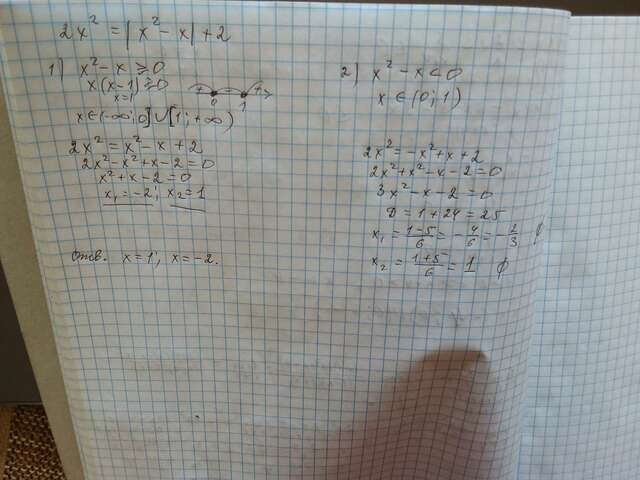 2x² = |x² - x| + 2
1) x² - x ≥ 0
x(x-1) ≥ 0
x=1
+ - +
0 1
x ∈ (-∞; 0] ∪ [1; +∞)
2x² = x² - x + 2
2x² - x² + x - 2 = 0
x² + x - 2 = 0
x₁ = -2; x₂ = 1
Отв. x = 1; x = -2.
2) x² - x < 0
x ∈ (0; 1)
2x² = -x² + x + 2
2x² + x² - x - 2 = 0
3x² - x - 2 = 0
D = 1 + 24 = 25
x₁ = (1-5)/6 = -4/6 = -2/3 ∅
x₂ = (1+5)/6 = 1 ∅